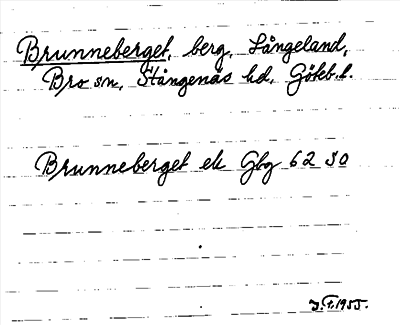 Brunneberget, berg, Långeland,
Bro sn, Stångenäs hd, Göteb. l.
Brunneberget ek Gbg 62 SO
J. F. 1955.